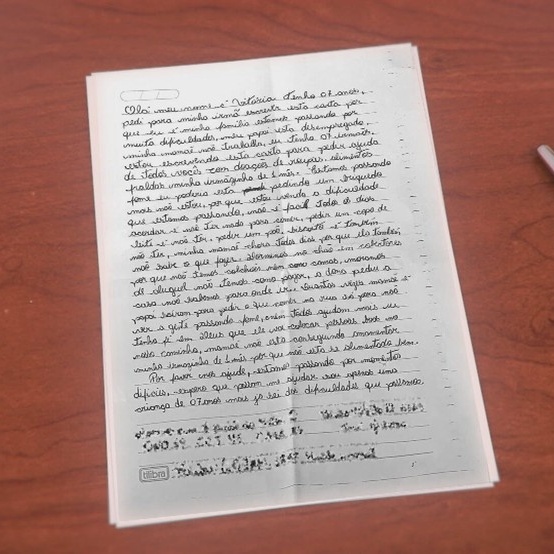 Olá meu nome é Vitória tenho 07 anos,
pedi para minha irmã escrever esta carta por
que eu e minha família estamos passando por
muita dificuldades, meu papai está desempregado,
minha mamãe não trabalha, eu tenho 07 irmãos.
estou escrevendo esta carta para pedir ajuda
de todos vocês com doações de roupas, alimentos
fraldas minha irmãzinha de 1 mês. Estamos passando
fome eu poderia está pedindo um brinquedo
mais não estou, por que estou vendo a dificuldade
que estamos passando, não é fácil todos os dias
acordar e não ter nada para comer, pedir um copo de
leite e não ter, pedir um pão, biscoito e também
não ter, minha mamãe chora todos dias por que ela também
não sabe o que fazer. dormimos no chão em cobertores
por que não temos colchões nem camas, moramos
de aluguel não temos como pagar, a dona pediu a
casa não sabemos para onde ir. quantas vezes mamãe e
papai saíram para pedir o que comer na rua só para não
ver a gente passando fome, nem todos ajudam mais eu
tenho fé em Deus que ele vai colocar pessoas boas no
nosso caminho, mamãe não está conseguindo amamentar
minha irmãzinha de 1 mês por que não está se alimentando bem.
Por favor nos ajude, estamos passando por momentos
difíceis, espero que possam me ajudar sou apenas uma
criança de 07 anos mais já sei das dificuldades que passamos.
tilibra